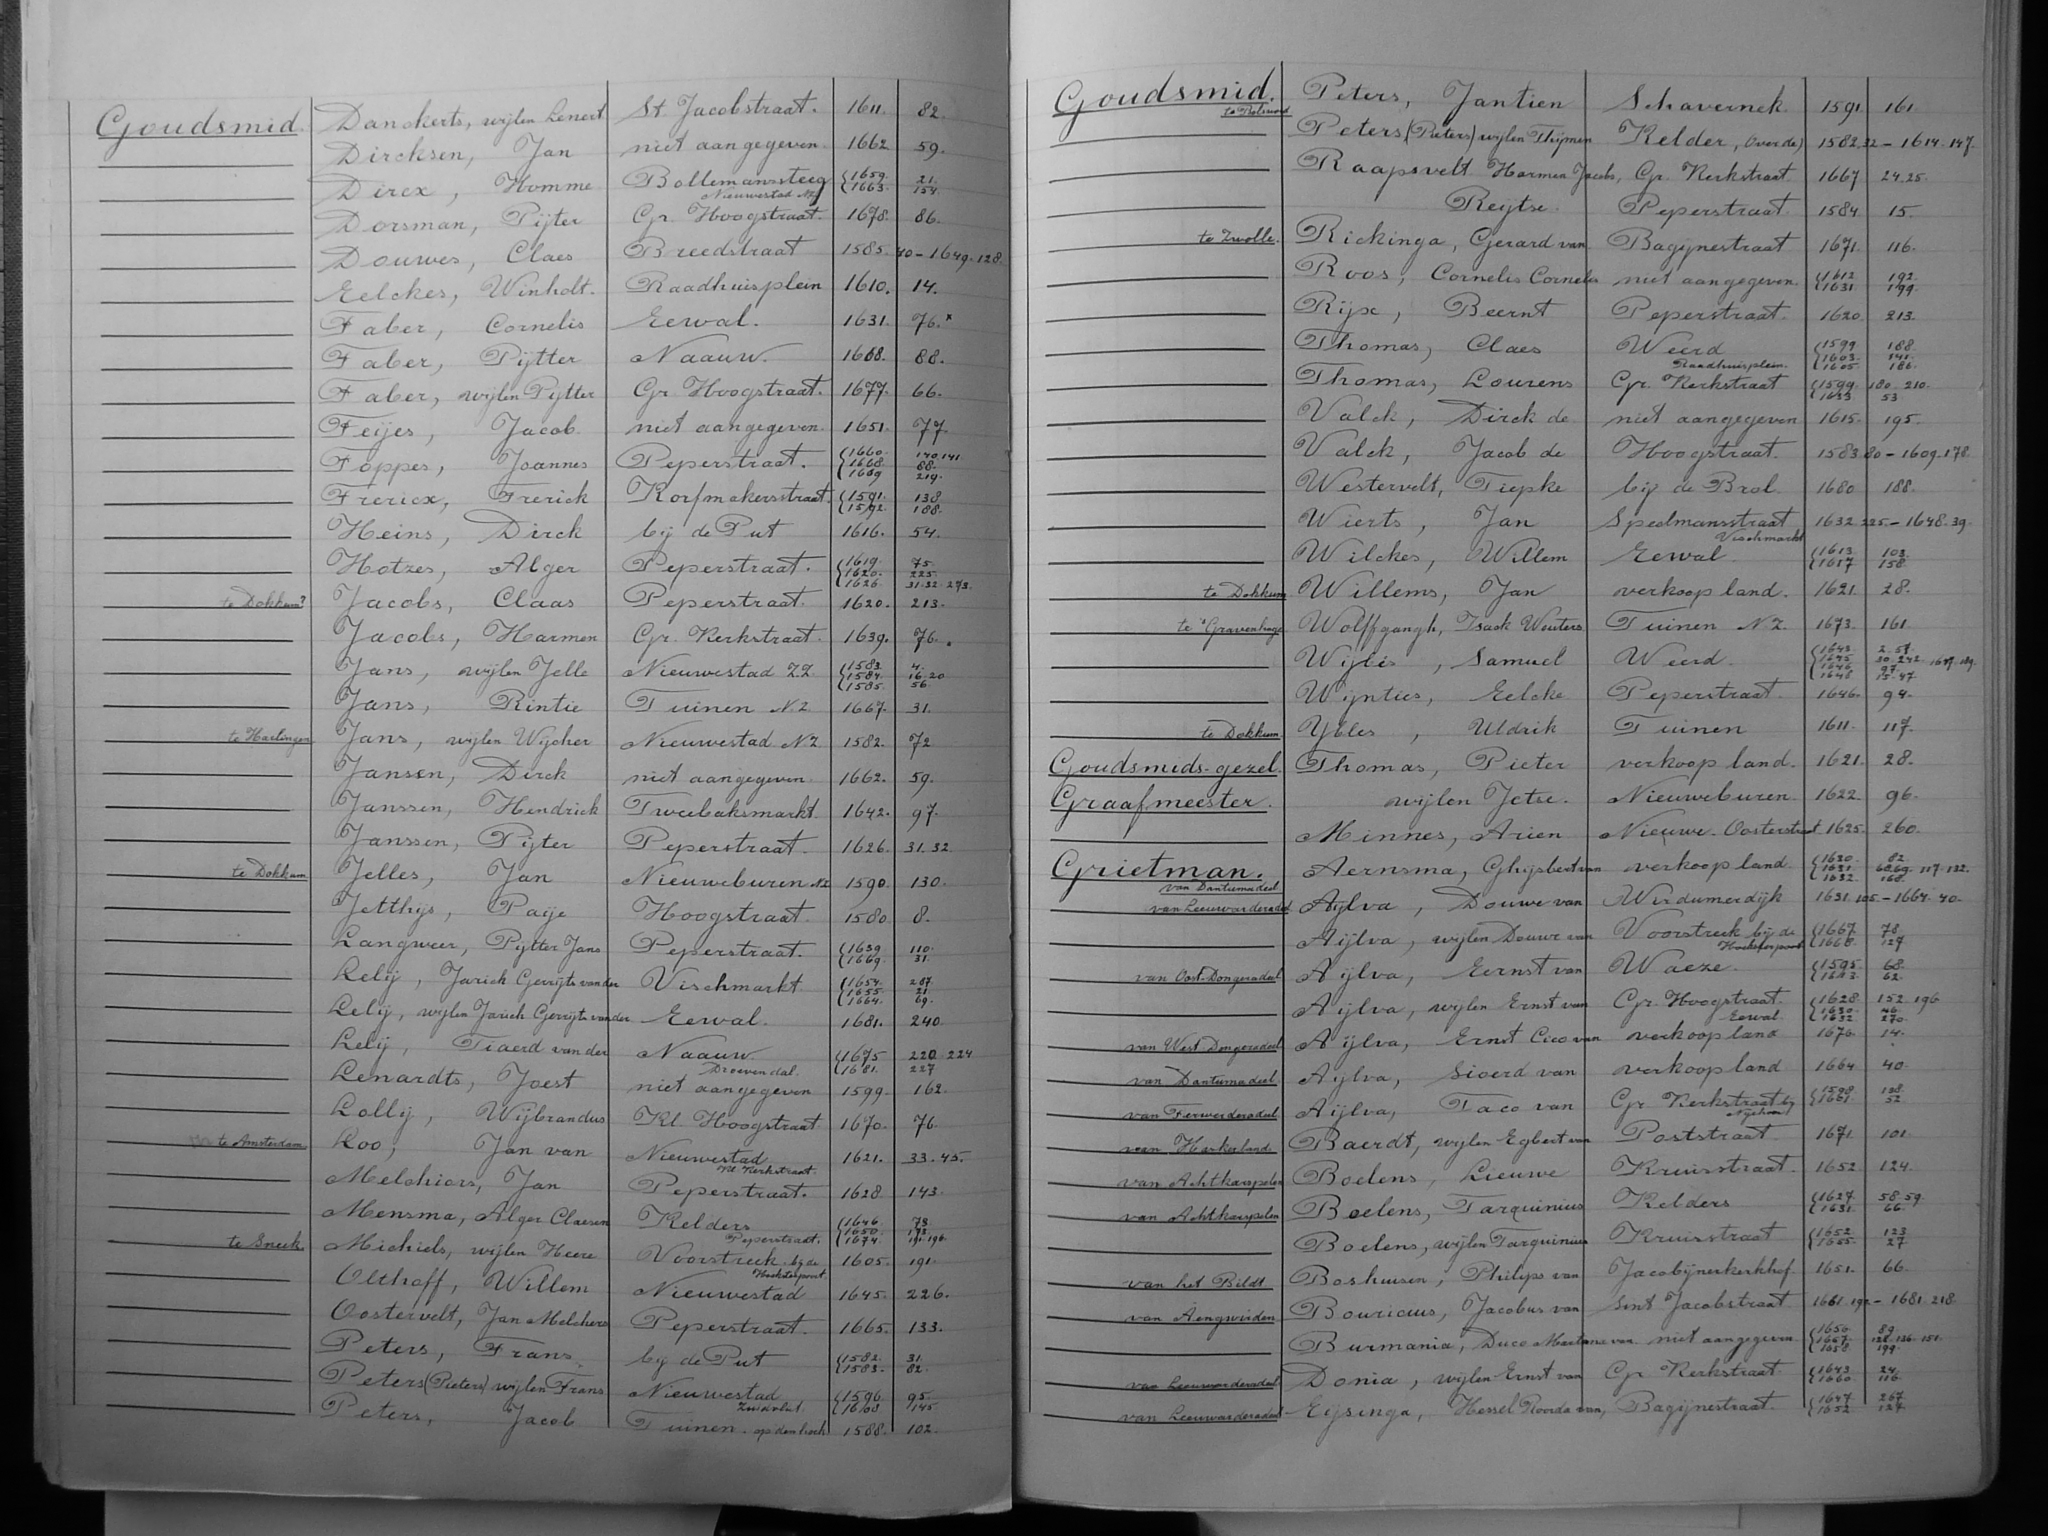 Goudsmid. Danckerts, wijlen Lenert St. Jacobstraat. 1611. 82.
Dircksen, Jan niet aangegeven. 1662. 59.
Direx, Homme Bollemanssteeg {1659. 21.
Nieuwestad NZ. {1663. 154.
Dorsman, Pijter Gr. Hoogstraat. 1678. 86.
Douwes, Claes Breedstraat 1585. 40 - 1649. 128.
Eelckes, Winholt. Raadhuisplein 1610. 14.
Faber, Cornelis Eewal. 1631. 76.x
Faber, Pijtter Naauw. 1668. 88.
Faber, wijlen Pijtter Gr. Hoogstraat. 1677. 66.
Feijes, Jacob niet aangegeven. 1651. 77.
Foppes, Joannes Peperstraat. {1660. 140.141.
{1668. 88.
{1669 219.
Frericx, Frerick Korfmakersstraat {1591. 138
{1592. 188.
Heins, Dirck bij de Put 1616. 54.
Hotzes, Alger Peperstraat. {1619. 75.
{1620. 225.
{1626. 31.32. 273.
te Dokkum? Jacobs, Claas Peperstraat. 1620. 213.
Jacobs, Harmen Gr. Kerkstraat. 1639. 76.
Jans, wijlen Jelle Nieuwestad Z.Z. {1583. 4.
{1584. 16.20
{1585. 56.
Jans, Rintie Tuinen NZ 1667. 31.
te Harlingen Jans, wijlen Wijcher Nieuwestad NZ 1582. 72
Jansen, Dirck niet aangegeven. 1662. 59.
Janssen, Hendrick Tweebaksmarkt. 1642. 97.
Janssen, Pijter Peperstraat. 1626. 31.32.
te Dokkum Jelles, Jan Nieuweburen NZ 1590. 130.
Jetthijs, Paije Hoogstraat. 1580 8.
Langweer, Pijtter Jans Peperstraat. {1639. 110.
{1669. 31.
Lelij, Jarich Gerrijts van der Vischmarkt {1654. 287
{1655. 21
{1664. 69.
Lelij, wijlen Jarich Gerrijts van der Eewal. 1681. 240.
Lelij, Tiaerd van der Naauw {1675 220. 224
Droevendal. {1681. 227
Lenardts, Joest niet aangegeven 1599. 162.
Lollij, Wijbrandus Kl. Hoogstraat 1670. 76.
te Amsterdam Loo, Jan van Nieuwestad 1621. 33.45.
Kl. Kerkstraat.
Melchiors, Jan Peperstraat. 1628. 143.
Mensma, Alger Claesen Kelders {1646 78.
Peperstraat. {1650
{1674.
te Sneek. Michiels, wijlen Heere Voorstreek bij de 1605. 191.
Hoeksterpoort.
Olthoff, Willem Nieuwestad 1645. 226.
Oostervelt, Jan Melchers Peperstraat. 1665. 133.
Peters, Frans. bij de Put {1582. 31.
{1583. 82.
Peters (Pieters) wijlen Frans Nieuwestad {1596. 95.
Zuidvliet. {1608 145.
Peters, Jacob Tuinen. op den hoek 1588. 102.
Goudsmid. Peters, Jantien Schavernek. 1591. 161.
te Bolsward Peters (Pieters) wijlen Thijmen Kelder, (over de) 1582.32 - 1614. 147.
Raapsvelt Harmen Jacobs, Gr. Kerkstraat. 1667 24.25.
Reijtse. Peperstraat. 1584. 15.
te Zwolle. Rickinga, Gerard van Bagijnestraat 1671. 116.
Roos, Cornelis Cornelis niet aangegeven. {1612 192.
{1631. 199.
Rijse, Beernt Peperstraat. 1620. 213.
Thomas, Claes Weerd {1599 188.
Raadhuisplein. {1603. 141.
{1605 186.
Thomas, Lourens Gr. Kerkstraat {1599. 180. 210.
{1633 53
Valck, Dirck de niet aangegeven 1615. 195.
Valck, Jacob de Hoogstraat. 1583. 80 - 1609. 178.
Westervelt, Tiepke bij de Brol. 1680 188.
Wierts, Jan Speelmansstraat, 1632. 225. - 1648. 39.
Vischmarkt
Wilckes, Willem Eewal. {1613. 103.
{1617 158.
te Dokkum Willems, Jan verkoop land. 1621. 28.
te 's Gravenhage Wolffgangh, Isack Wouters Tuinen NZ. 1673. 161
Wijbes, Samuel Weerd. {1643. 2. 57.
{1645 30. 242.
{1646 97.
{1648 15. 47.
Wijnties, Eelcke Peperstraat. 1646. 94.
te Dokkum. Ybles, Uldrik Tuinen 1611. 117.
Goudsmids-gezel. Thomas, Pieter verkoop land. 1621. 28.
Graafmeester. wijlen Jetse. Nieuweburen. 1622. 96.
Minnes, Arien Nieuwe-Oosterstraat 1625. 260.
Grietman. Aernsma, Ghijsbert van verkoop land {1620. 82.
van Dantumadeel {1631. 68.69. 117. 132.
{1632 168.
van Leeuwarderadeel Aijlva, Douwe van Wirdumerdijk 1631. 105. - 1664. 40.
Aijlva, wijlen Douwe van Voorstreek bij de {1667. 78.
Hoeksterpoort {1668. 127
van Oost-Dongeradeel Aijlva, Eernst van Waeze {1595 68.
{1603 62.
Aijlva, wijlen Ernst van Gr. Hoogstraat. {1628. 152. 196
Eewal. {1630 46.
{1632 270.
van West-Dongeradeel Aijlva, Ernst Cico van verkoop land 1676. 14.
van Dantumadeel. Aijlva, Sioerd van verkoop land 1664 40.
van Ferwerderadeel Aijlva, Taco van Gr. Kerkstraat bij {1598 128.
{1601. 52
van Harkerland Baerdt, wijlen Egbert van Poststraat 1671. 101.
van Achtkarspelen Boelens, Lieuwe Kruisstraat. 1652. 124.
van Achtkarspelen Boelens, Tarquinius Kelders {1627. 58.59.
{1631. 66.
Boelens, wijlen Tarquinius Kruisstraat {1652 123
{1655. 27
van het Bildt Boshuisen, Philips van Jacobijnerkerkhof. 1651. 66.
van Aengwirden Bouricius, Jacobus van Sint Jacobstraat. 1661. 192 - 1681. 218.
Burmania, Duco Martena van niet aangegeven {1650 89.
{1657. 128. 136. 151.
{1658 199.
van Leeuwarderadeel Donia, wijlen Ernst van Gr Kerkstraat {1643 24.
{1660. 116.
van Leeuwarderadeel Eijsinga, Hessel Roorda van, Bagijnestraat. {1647 267
{1652 127